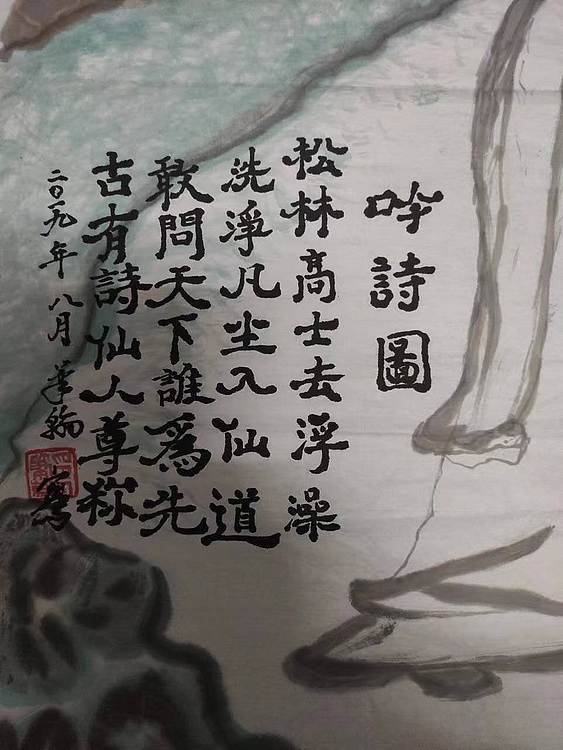 吟詩圖
松林高士去浮澡
洗淨凡尘入仙道
敢問天下誰為先
古有詩仙人尊称
二〇一九年八月 筆翰
寫